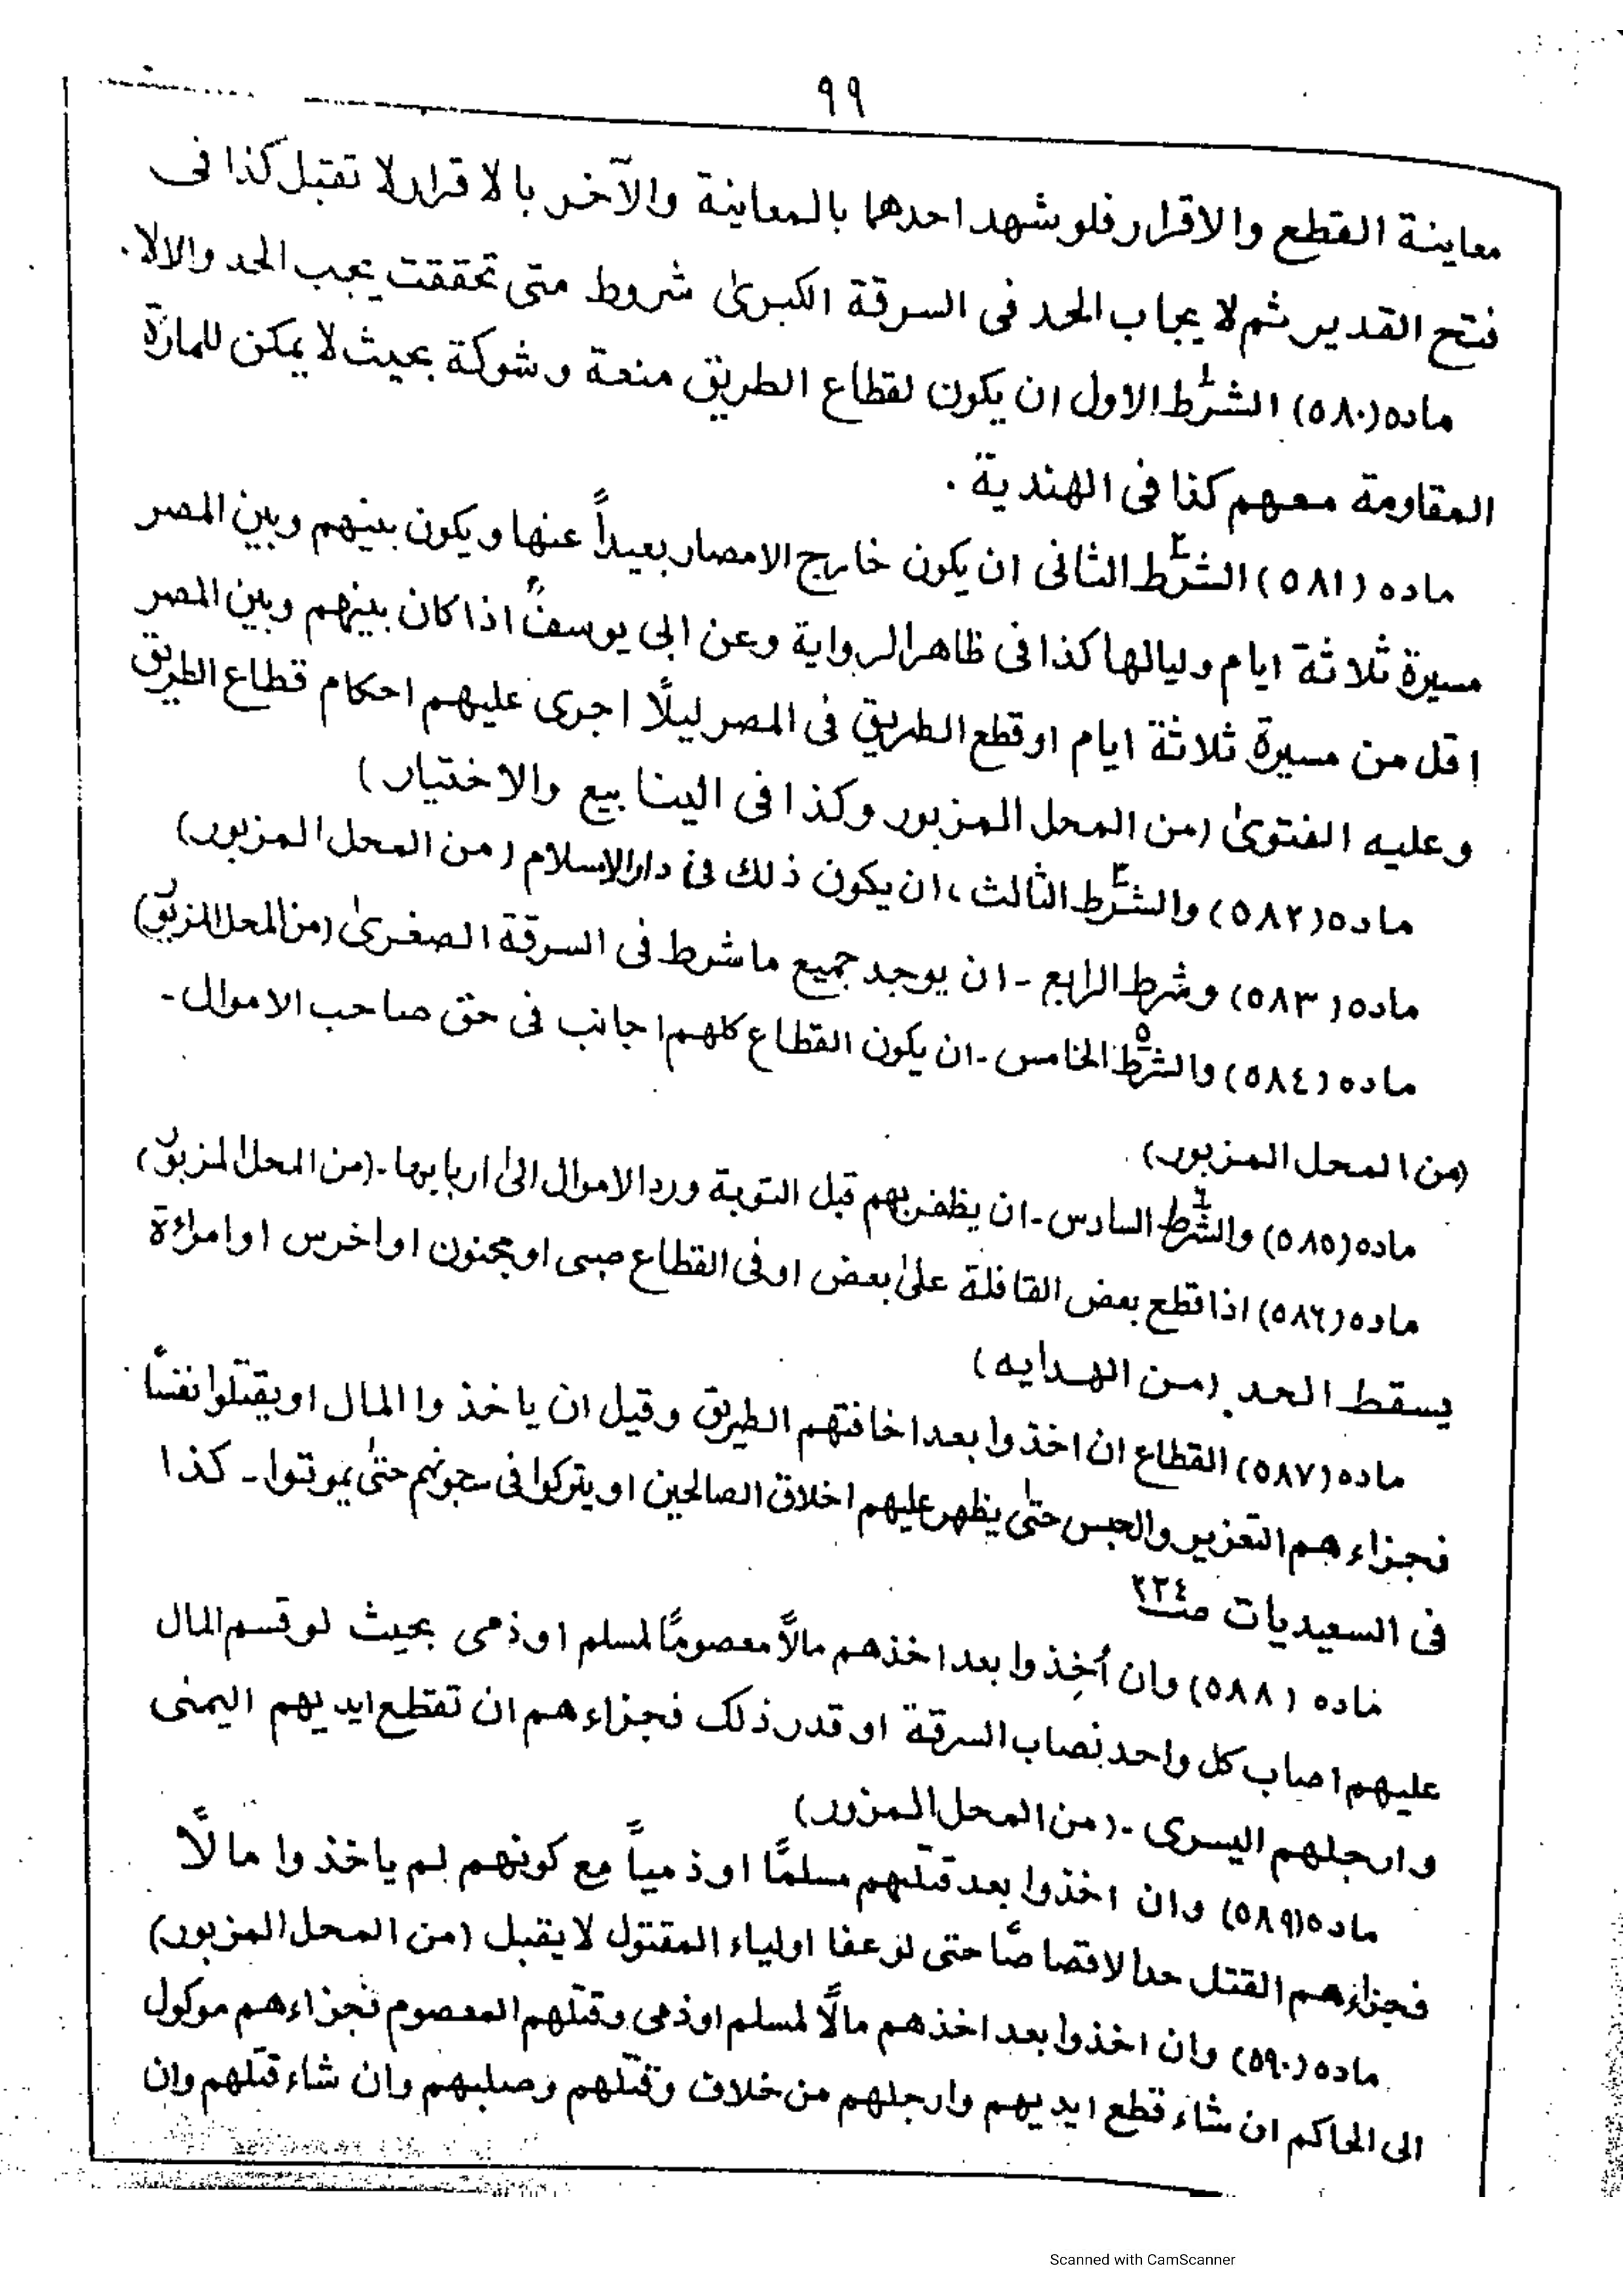 ٩٩
معاينة القطع والاقرار فلو شهد احدهما بالمعاينة والآخر بالاقرار لا تقبل كذا فى
فتح القدير ثم لا يجاب الحد فى السرقة الكبرىٰ شروط متى تحققت يجب الحد والا لا.
ماده (٥٨٠) الشرط الاول ان يكون لقطاع الطريق منعة و شوكة بحيث لا يمكن للمارة
المقاومة معهم كذا فى الهندية .
ماده (٥٨١) الشرط الثانى ان يكون خارج الامصار بعيداً عنها و يكون بينهم وبين المصر
مسيرة ثلاثة ايام و ليالها كذا فى ظاهر الرواية وعن ابى يوسفؒ اذا كان بينهم وبين المصر
اقل من مسيرة ثلاثة ايام او قطع الطريق فى المصر ليلًا اجرى عليهم احكام قطاع الطريق
وعليه الفتوىٰ (من المحل المزبور وكذا فى الينابيع والاختيار)
ماده (٥٨٢) والشرط الثالث، ان يكون ذلك فى دار الاسلام (من المحل المزبور)
ماده (٥٨٣) وشرط الرابع - ان يوجد جميع ما شرط فى السرقة الصغرىٰ (من المحل المزبور)
ماده (٥٨٤) والشرط الخامس - ان يكون القطاع كلهم اجانب فى حق صاحب الاموال -
(من المحل المزبور)
ماده (٥٨٥) والشرط السادس - ان يظفر بهم قبل التوبة ورد الاموال الىٰ اربابها - (من المحل المزبور)
ماده (٥٨٦) اذا قطع بعض القافلة علىٰ بعض او فى القطاع صبى او مجنون او اخرس او امرائة
يسقط الحد (من الهدايه)
ماده (٥٨٧) القطاع ان اخذوا بعد اخافتهم الطريق و قيل ان ياخذ وا المال او يقتلوا نفسًا
فجزاء هم التعزير والحبس حتىٰ يظهر عليهم اخلاق الصالحين او يتركوا فى سجونهم حتىٰ يموتوا - كذا
فى السعيديات صـ٢٣٤
ماده (٥٨٨) وان أُخِذ وا بعد اخذهم مالاً معصومًا لمسلم او ذمى بحيث لو قسم المال
عليهم اصاب كل واحد نصاب السرقة او قدر ذلك فجزاء هم ان تقطع ايديهم اليمنى
و ارجلهم اليسرى - (من المحل المزور)
ماده (٥٨٩) وان اخذوا بعد قتلهم مسلمًا او ذمياً مع كونهم لم ياخذ وا مالاً
فجزاءهم القتل حدا لا قصاصًا حتى لو عفا اولياء المقتول لا يقبل (من المحل المزبور)
ماده (٥٩٠) وان اخذوا بعد اخذهم مالاً لمسلم او ذمى وقتلهم المعصوم فجزاءهم موكول
الى الحاكم ان شاء قطع ايديهم وارجلهم من خلاف وقتلهم وصلبهم وان شاء قتلهم وان
Scanned with CamScanner